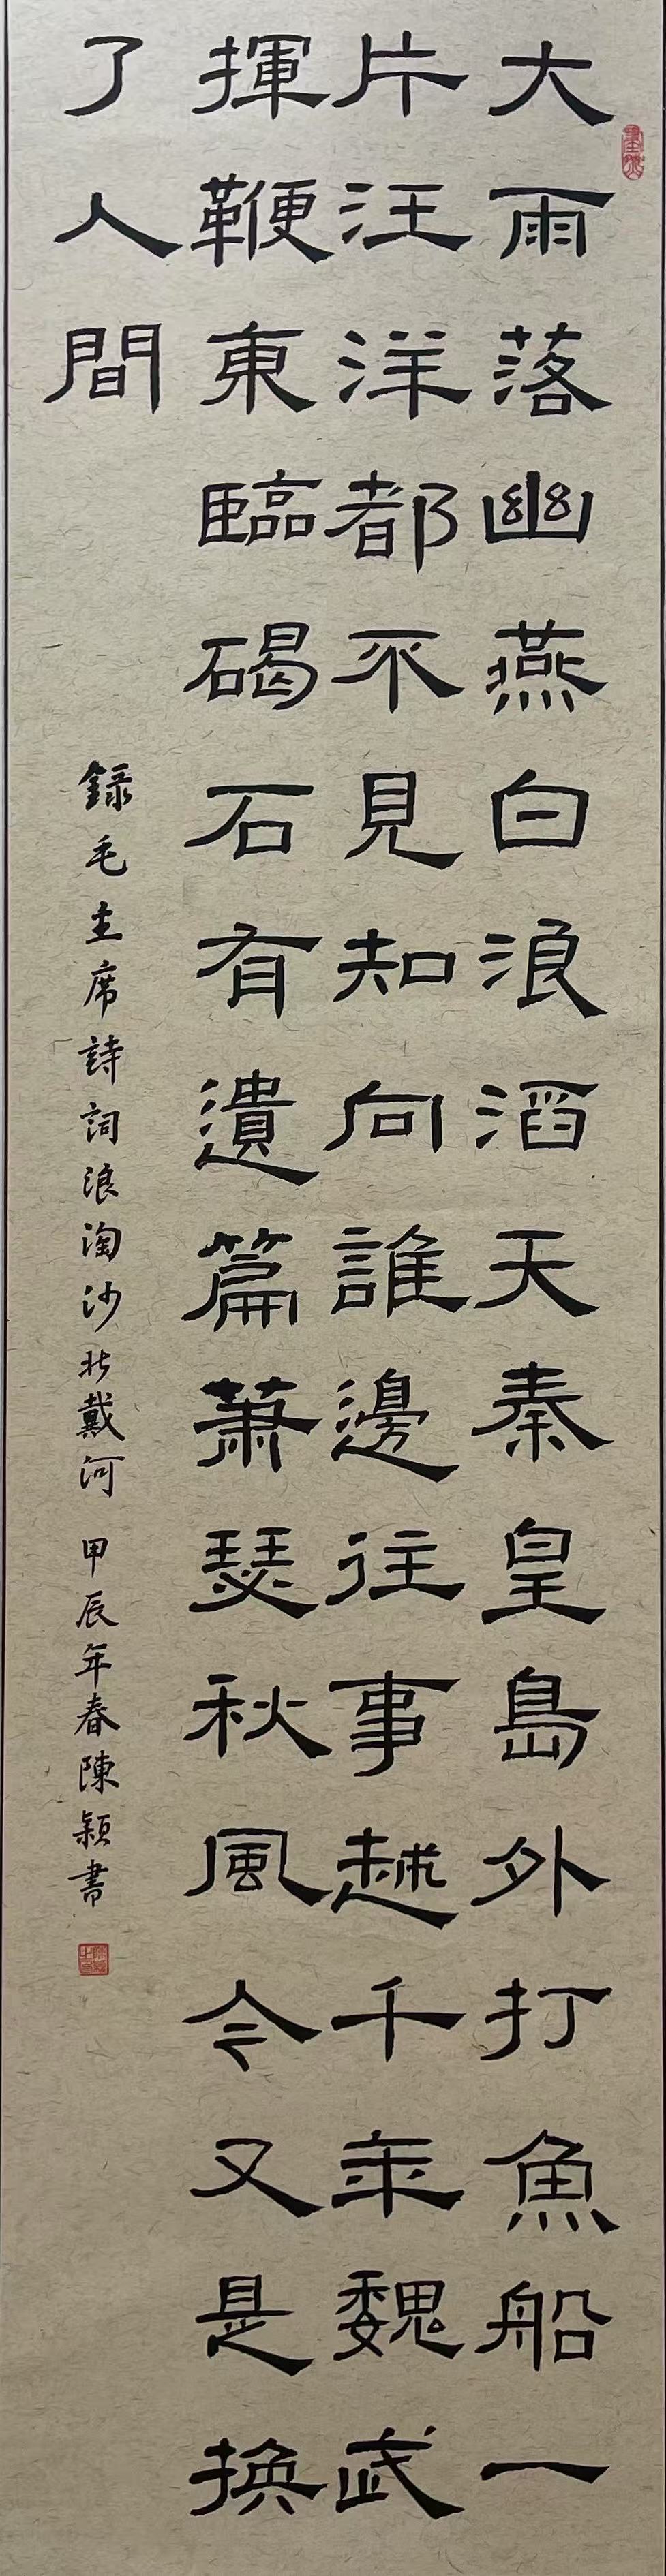 大雨落幽燕白浪滔天秦皇島外打魚船一
片汪洋都不見知向誰邊往事越千年魏武
揮鞭東臨碣石有遺篇蕭瑟秋風今又是換
了人間
錄毛主席詩詞浪淘沙北戴河 甲辰年春陳穎書